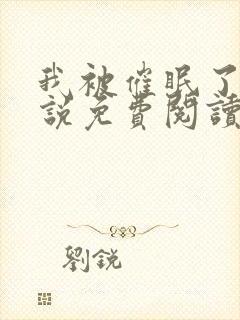 我被催眠了
說免費閱讀
劉銳